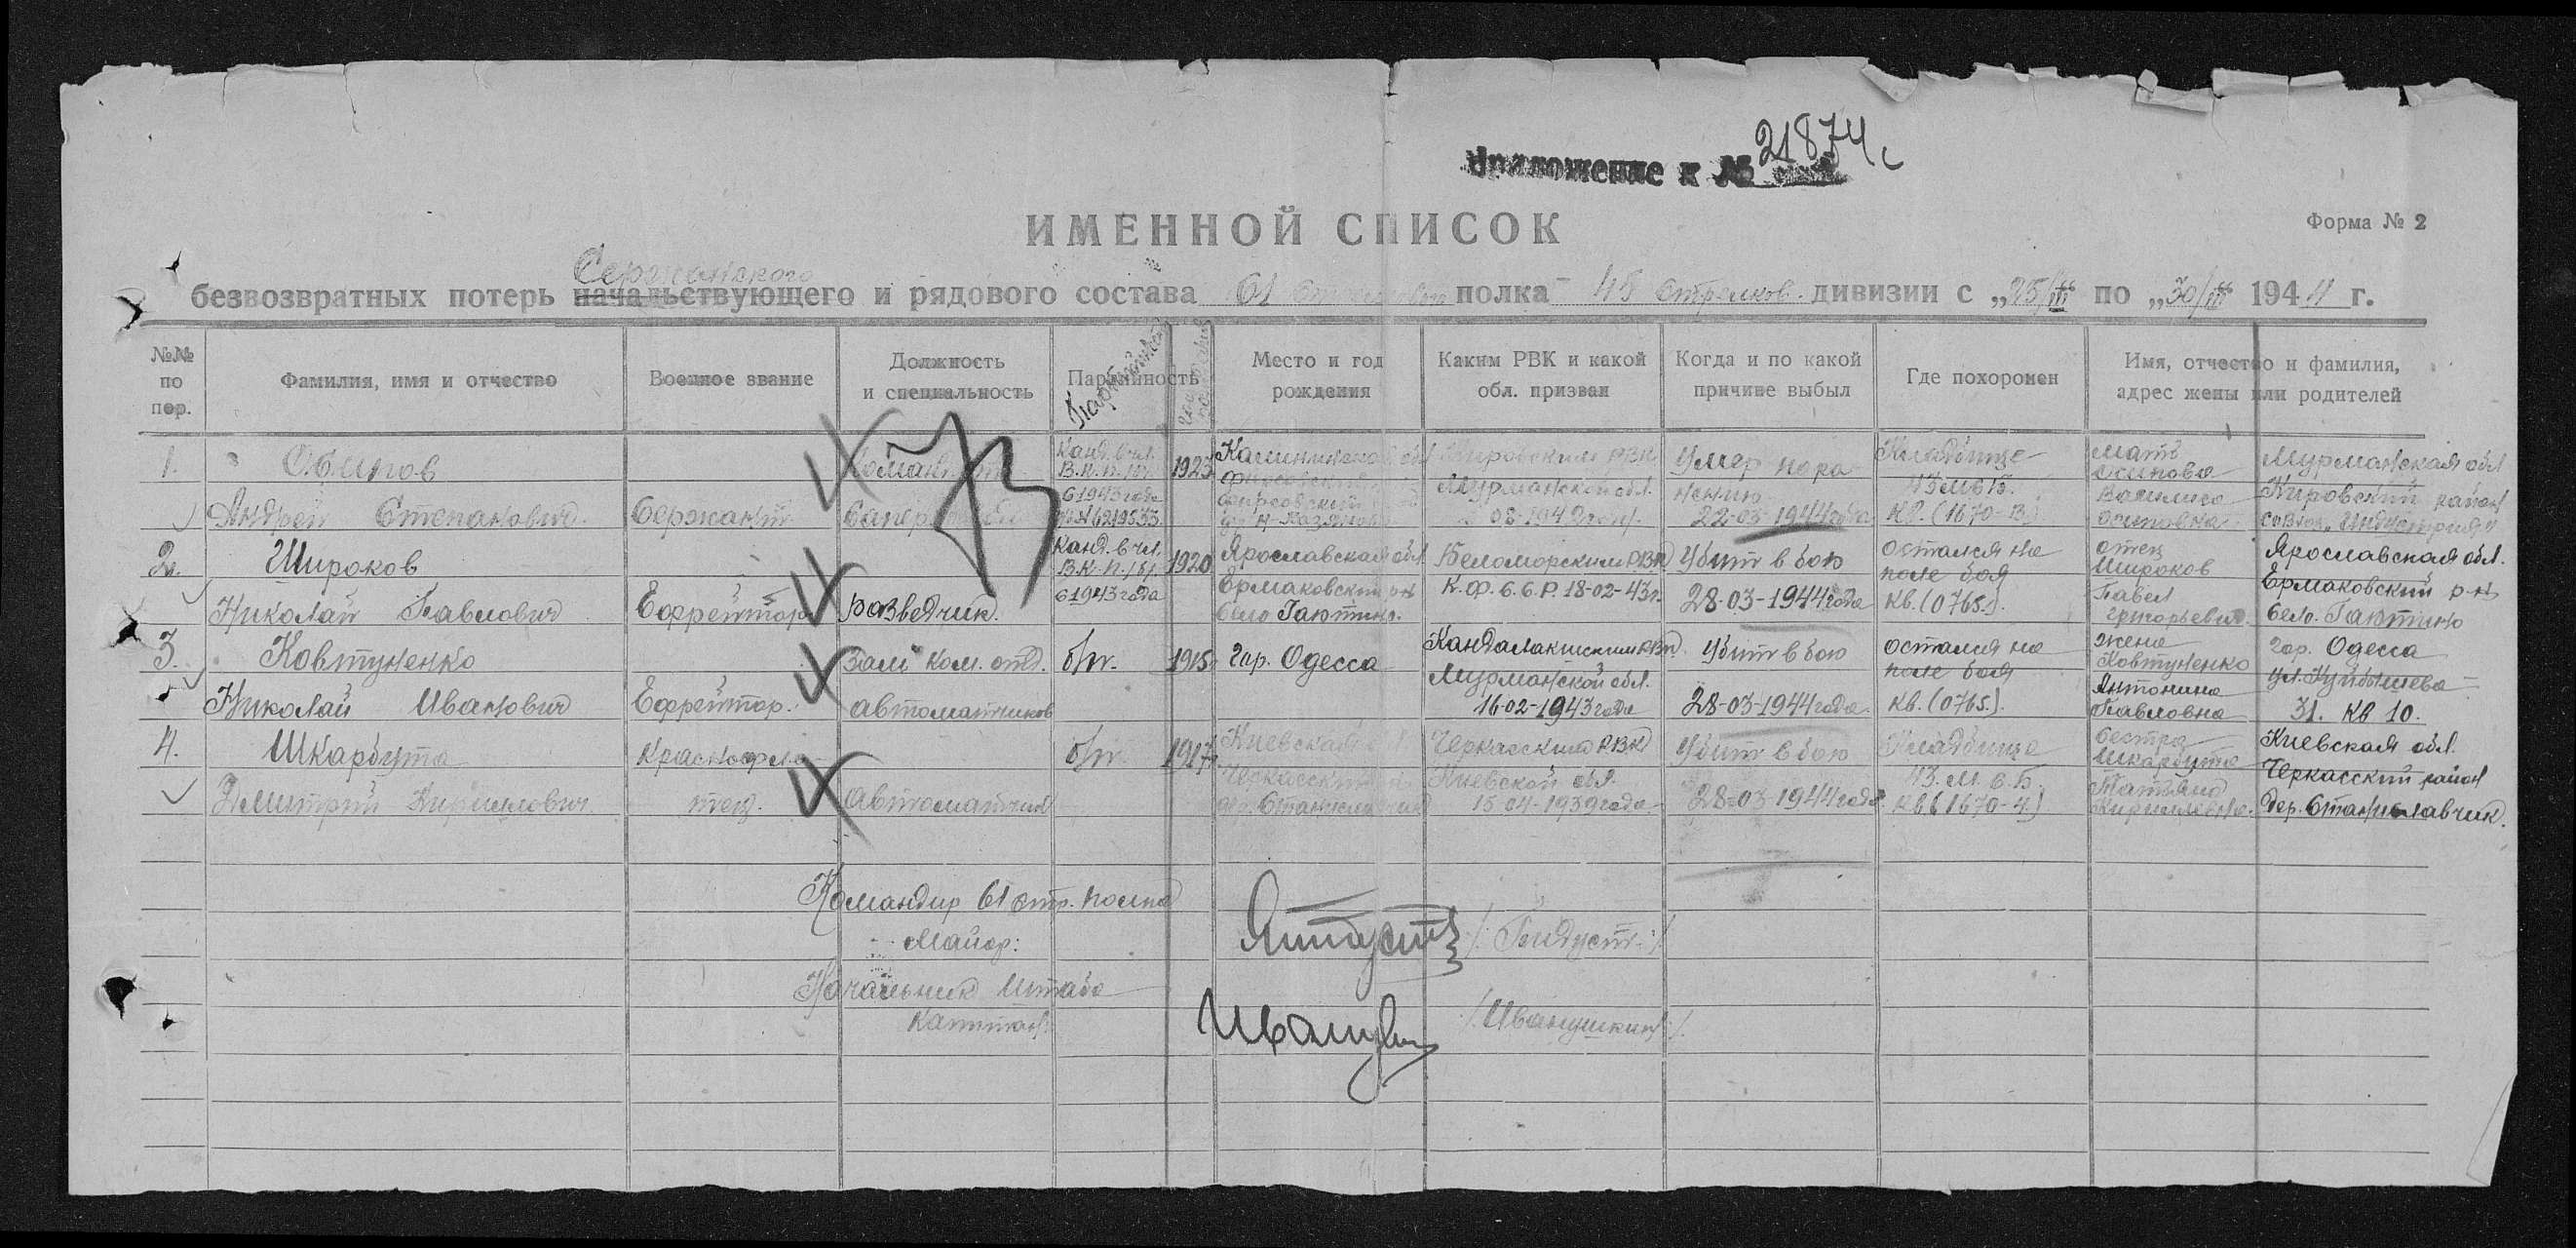 21874с
Приложение к №
ИМЕННОЙ СПИСОК
Форма № 2
Сержанского
безвозвратных потерь начальствующего и рядового состава 61 полка 45 стрелков. дивизии с „25/III“ по „30/III“ 1944 г.
№№ по пор.
Фамилия, имя и отчество
Военное звание
Должность и специальность
Партийность
Партийность
Место и год рождения
Каким РВК и какой обл. призван
Когда и по какой причине выбыл
Где похоронен
Имя, отчество и фамилия, адрес жены или родителей
1.
Осипов
Андрей Степанович
Сержант
Сапер
Канд. в чл.
В.К.П./б/.
с 1943 года
1925
Калининская обл
Кировским РВК
Мурманской обл.
Умер по ра-
нению
22-03-1944 года
Кладбище
КВ. (1670-В)
мать
Осипова
Василиса
Осиповна
Мурманская обл
Кировский район
совхоз „Индустрия“
2.
Широков
Николай Павлович
Ефрейтор
разведчик.
Канд. в чл.
В.К.П./б/.
с 1943 года
1920
Ярославская обл
Ермаковский рн
село Гаютино.
Беломорским РВК
К.Ф.С.С.Р. 18-02-43г.
Убит в бою
28-03-1944 года
остался на
поле боя
кв. (0765.).
отец
Широков
Павел
Григорьевич.
Ярославская обл.
Ермаковский р-н
село. Гаютино
3.
Ковтуненко
Николай Иванович
Ефрейтор.
зам ком. отд.
автоматчиков
б/п.
1915г
гор. Одесса
Кандалакшским РВК
Мурманской обл.
16-02-1943 года
Убит в бою
28-03-1944 года
остался на
поле боя
кв. (0765).
жена
Ковтуненко
Антонина
Павловна
гор. Одесса
ул. Куйбышева
31. кв 10.
4.
Шкарбута
Дмитрий Кириллович
Краснофло-
тец.
автоматчик
б/п
1917г.
Киевская
Черкасский
дер. Станиславчик
Черкасским РВК
Киевской обл.
15-04-1939 года
Убит в бою
28-03-1944 года
Кладбище
43. М.С.Б.
КВ (1670-4)
сестра
Шкарбута
Татьяна
Кирилловна.
Киевская обл.
Черкасский район
дер. Станиславчик.
Командир 61 стр. полка
Майор:
Начальник Штаба
капитан:
/Иванушкин/